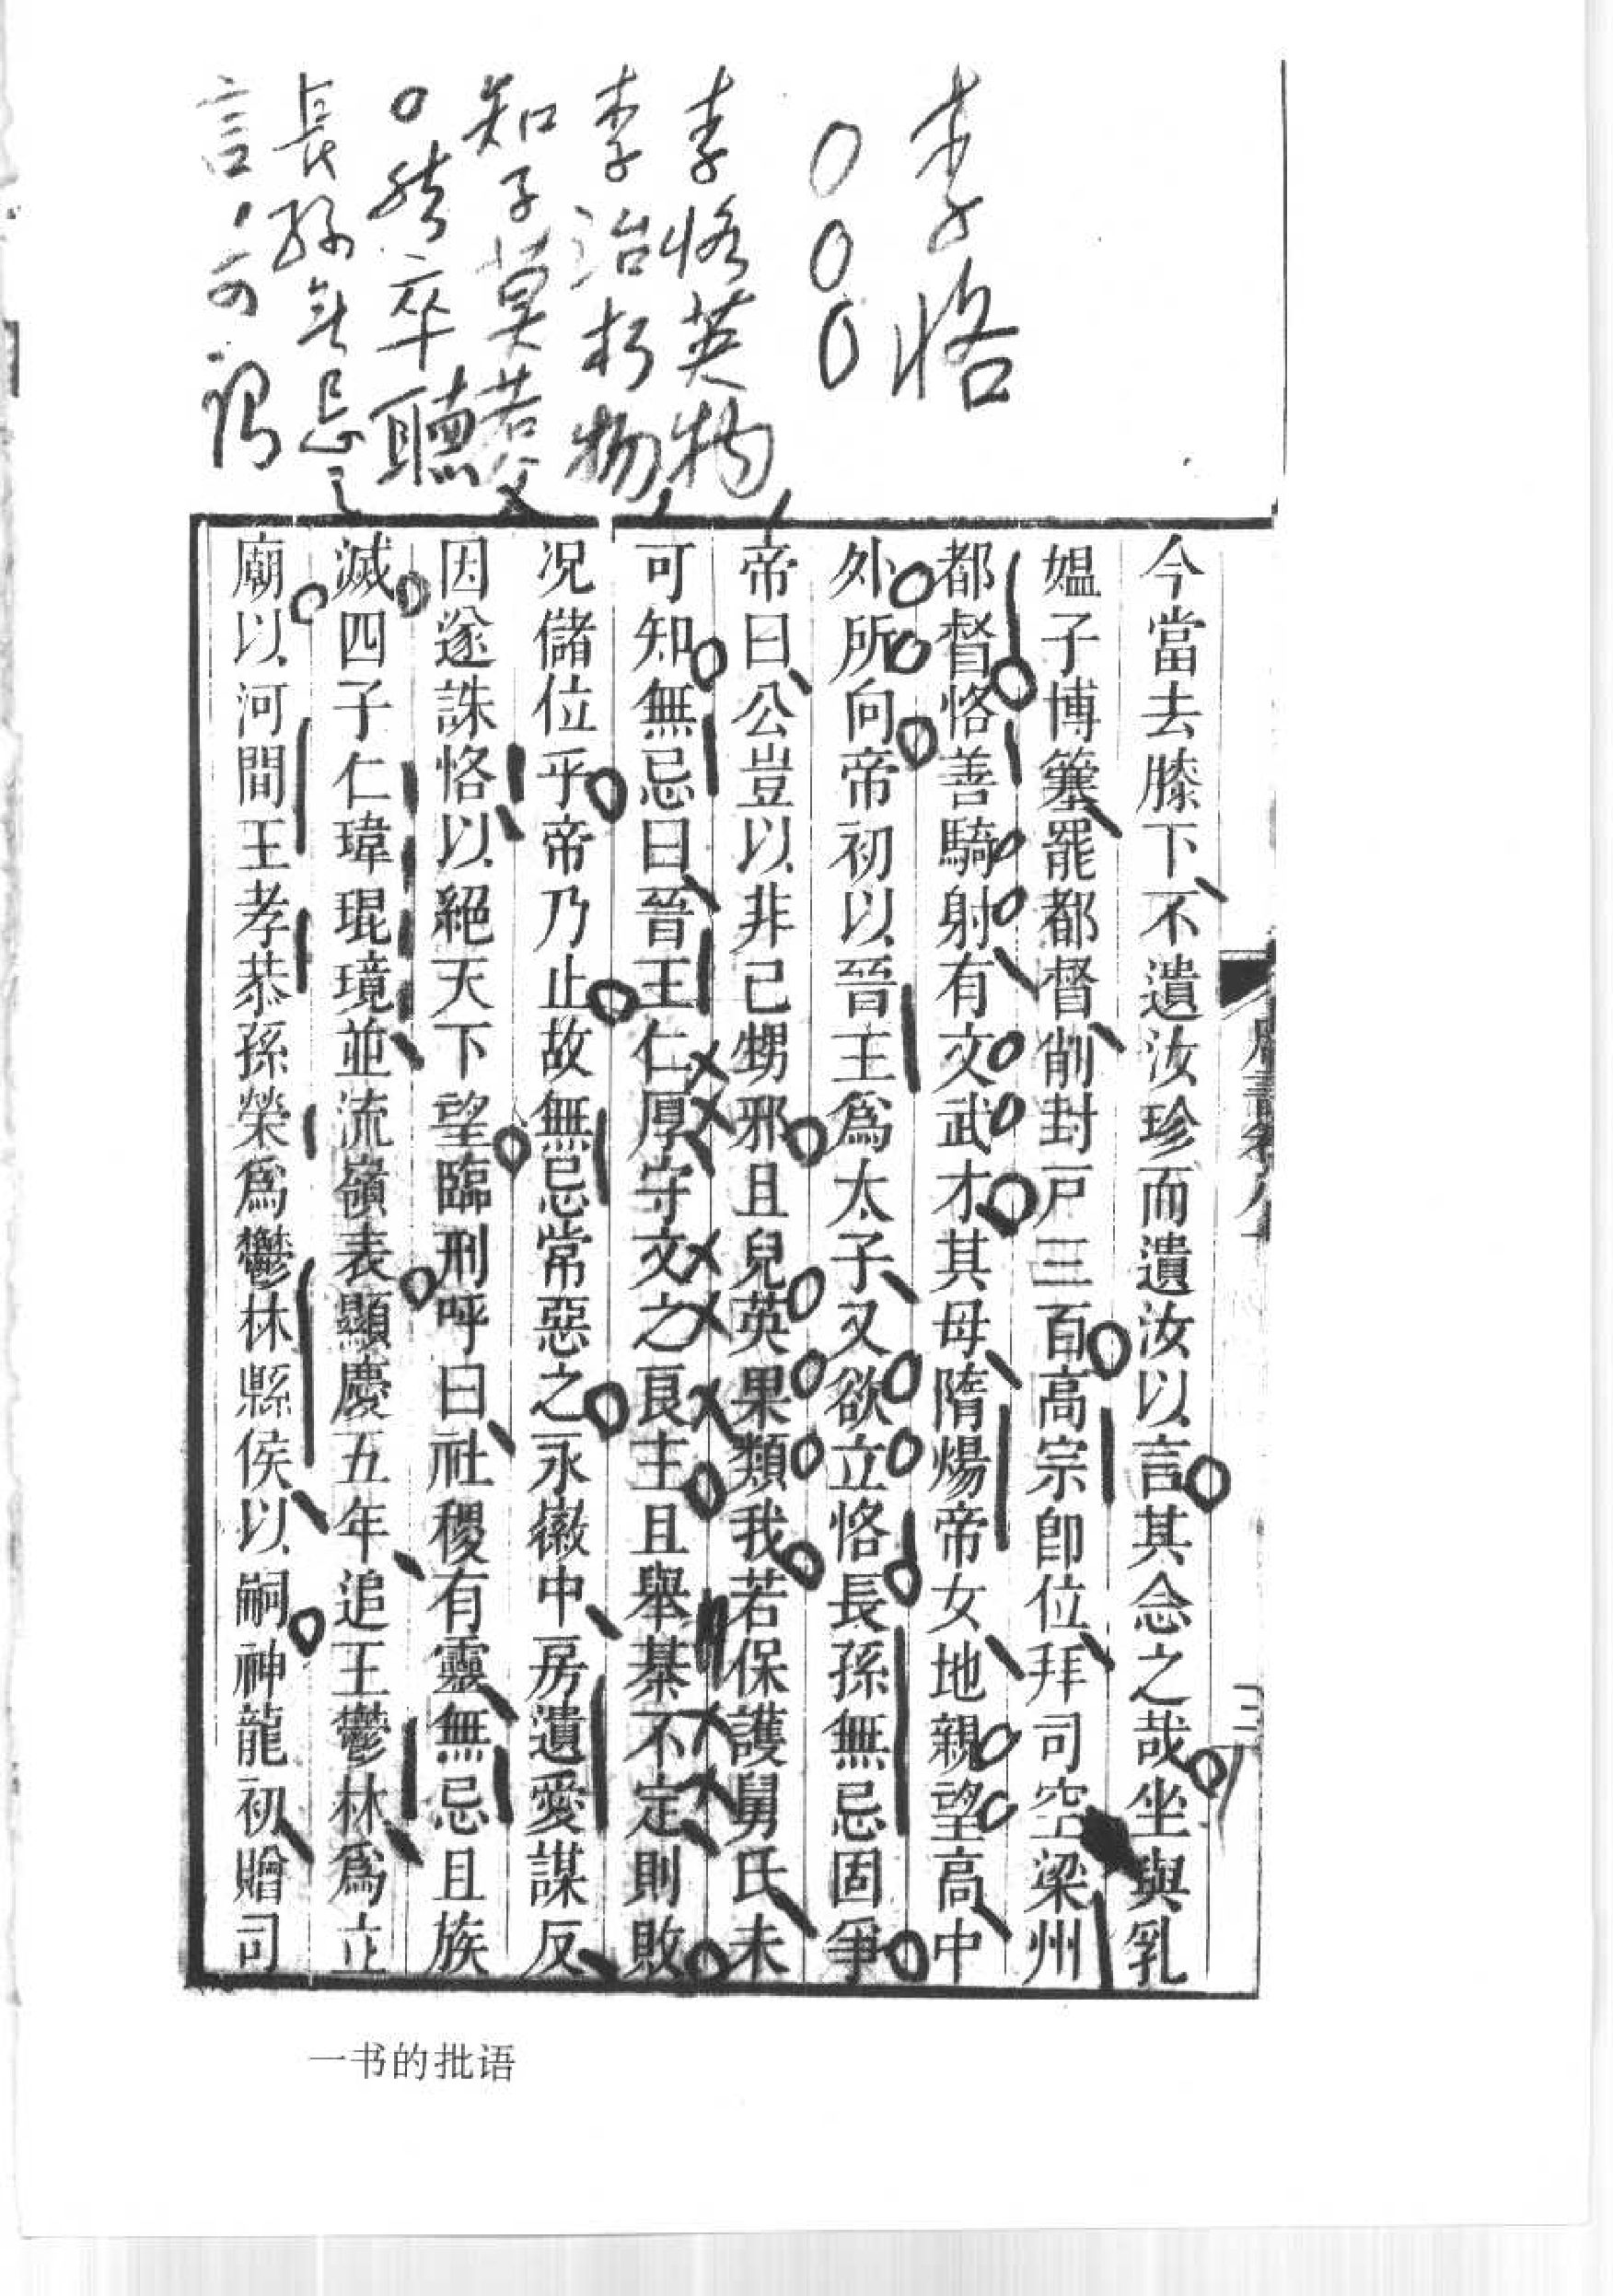 李恪
李恪英物
李治朽物
知子莫若父
然卒聽
長孫無忌之
言可謂
今當去膝下不遺汝珍而遺汝以言其念之哉坐與乳
媼子博簺罷都督削封戸三百高宗卽位拜司空梁州
都督恪善騎射有文武才其母隋煬帝女地親望高中
外所向帝初以晉王爲太子又欲立恪長孫無忌固爭
帝曰公豈以非己甥邪且兒英果類我若保護舅氏未
可知無忌曰晉王仁厚守文之良主且舉棊不定則敗
况儲位乎帝乃止故無忌常惡之永徽中房遺愛謀反
因遂誅恪以絕天下望臨刑呼曰社稷有靈無忌且族
滅四子仁瑋琨璄並流嶺表顯慶五年追王鬱林爲立
廟以河間王孝恭孫榮爲鬱林縣侯以嗣神龍初贈司
三
一书的批语